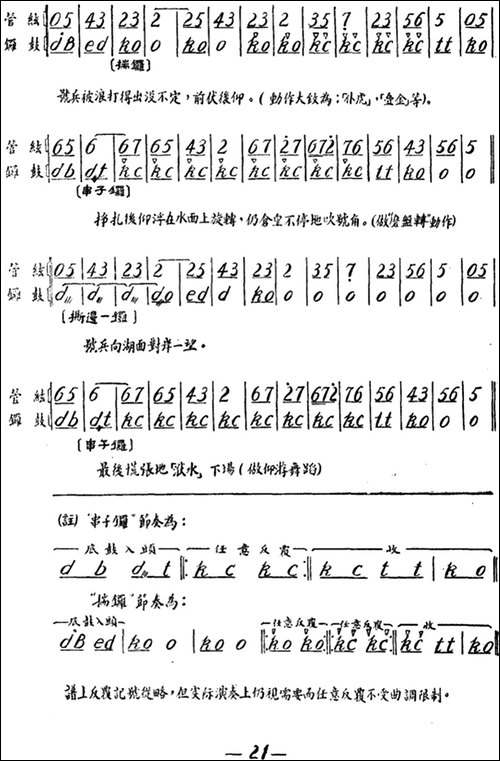 管絃 05 | 43 | 23 | 2 | 25 | 43 | 23 | 2 | 35 | 7 | 23 | 56 | 5 | 05
鑼鼓 dB | ed | ko | o | ko | o | ko | ko | kc | kc | kc | kc | tt | ko
(揣鑼)
號兵被浪打得出没不定，前伏後仰。(動作大致為：「卧虎」，「盘」等)。
管絃 65 | 6 | 67 | 65 | 43 | 2 | 67 | 27 | 672 | 76 | 56 | 43 | 56 | 5
鑼鼓 db | dt | kc | kc | kc | kc | kc | kc | kc | kc | tt | ko | o | o
(串子鑼)
挣扎後仰浮在水面上旋轉，仍不停地吹號角。(做盤轉"動作)
管絃 05 | 43 | 23 | 2 | 25 | 43 | 23 | 2 | 35 | 7 | 23 | 56 | 5 | 05
鑼鼓 d | d | d | do | ed | d | ko | o | o | o | o | o | o | o
(撕邊一鑼)
號兵向湖面對岸一望。
管絃 65 | 6 | 67 | 65 | 43 | 2 | 67 | 27 | 672 | 76 | 56 | 43 | 56 | 5
鑼鼓 db | dt | kc | kc | kc | kc | kc | kc | kc | kc | tt | ko | o | o
(串子鑼)
最後慌張地「水」下場(做仰游舞蹈)
(註) "串子鑼"節奏為：
底鼓入頭 任意反覆 收
d b d t |: k c k c :| k c t t | k o |
"揣鑼"節奏為：
底鼓入頭 任意反覆 任意反覆 收
dB ed | ko o | ko o |: ko ko :|: kc kc :| kc tt | ko
譜上反覆記號從略，但实际演奏上仍視需要而任意反覆不受曲調限制。
— 21 —